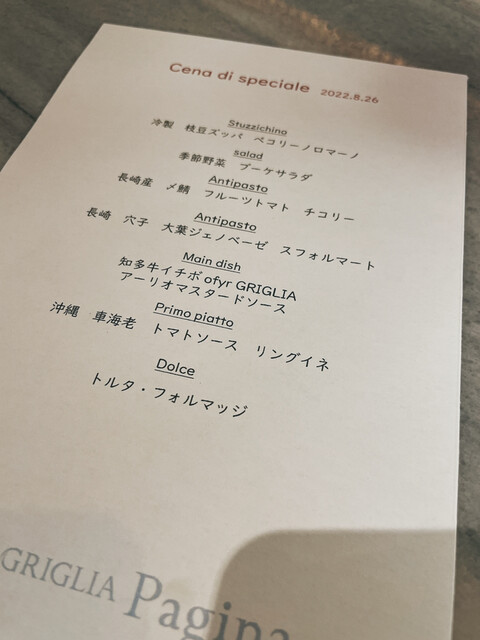 Cena di speciale 2022.8.26
Stuzzichino
冷製 枝豆ズッパ ペコリーノロマーノ
salad
季節野菜 ブーケサラダ
Antipasto
長崎産 〆鯖 フルーツトマト チコリー
Antipasto
長崎 穴子 大葉ジェノベーゼ スフォルマート
Main dish
知多牛イチボ ofyr GRIGLIA
アーリオマスタードソース
Primo piatto
沖縄 車海老 トマトソース リングイネ
Dolce
トルタ・フォルマッジ
GRIGLIA Pagina